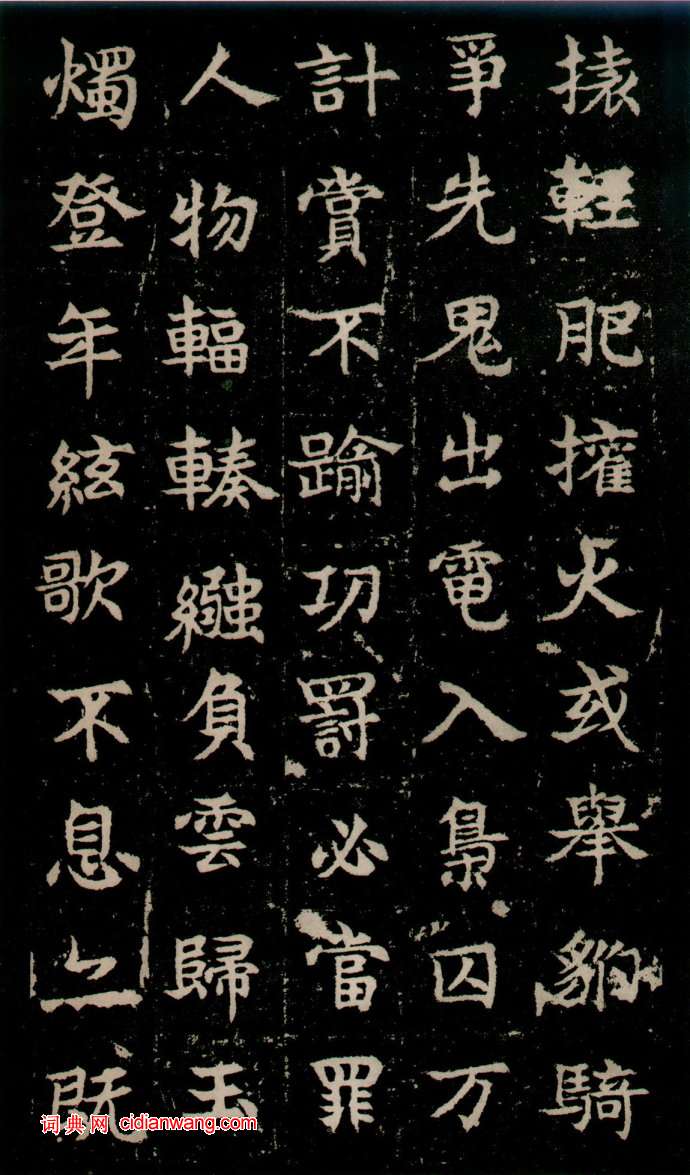 輕肥擁火或舉豹騎
爭先鬼出電入梟囚万
計賞不踰功罰必當罪
人物輻輳繈負雲歸玉
燭登年絃歌不息既
词典网 cidianwang.com